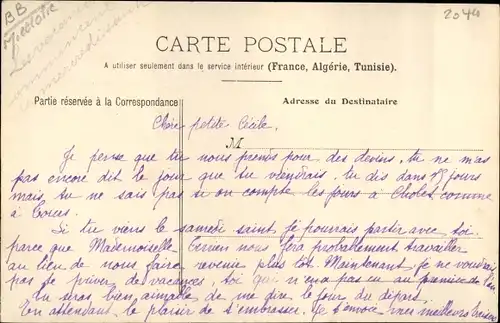 BB
2044
CARTE POSTALE
A utiliser seulement dans le service intérieur (France, Algérie, Tunisie).
Partie réservée à la Correspondance
Adresse du Destinataire
Chère petite Cécile,
M
Je pense que tu nous prends pour des devins, tu ne m'as
pas encore dit le jour que tu viendrais. tu dis dans 15 jours
mais tu ne sais pas si on compte les jours à Cholet comme
à
Si tu viens le samedi saint je pourrais partir avec toi
parce que Mademoiselle nous fera probablement travailler
au lieu de nous faire revenir plus tôt. Maintenant je ne voudrais
pas te priver de vacances, toi qui n'en a pas eu au
Tu seras bien aimable de me dire le jour du départ.
En attendant le plaisir de t'embrasser. Je t'envoie mes meilleurs baisers